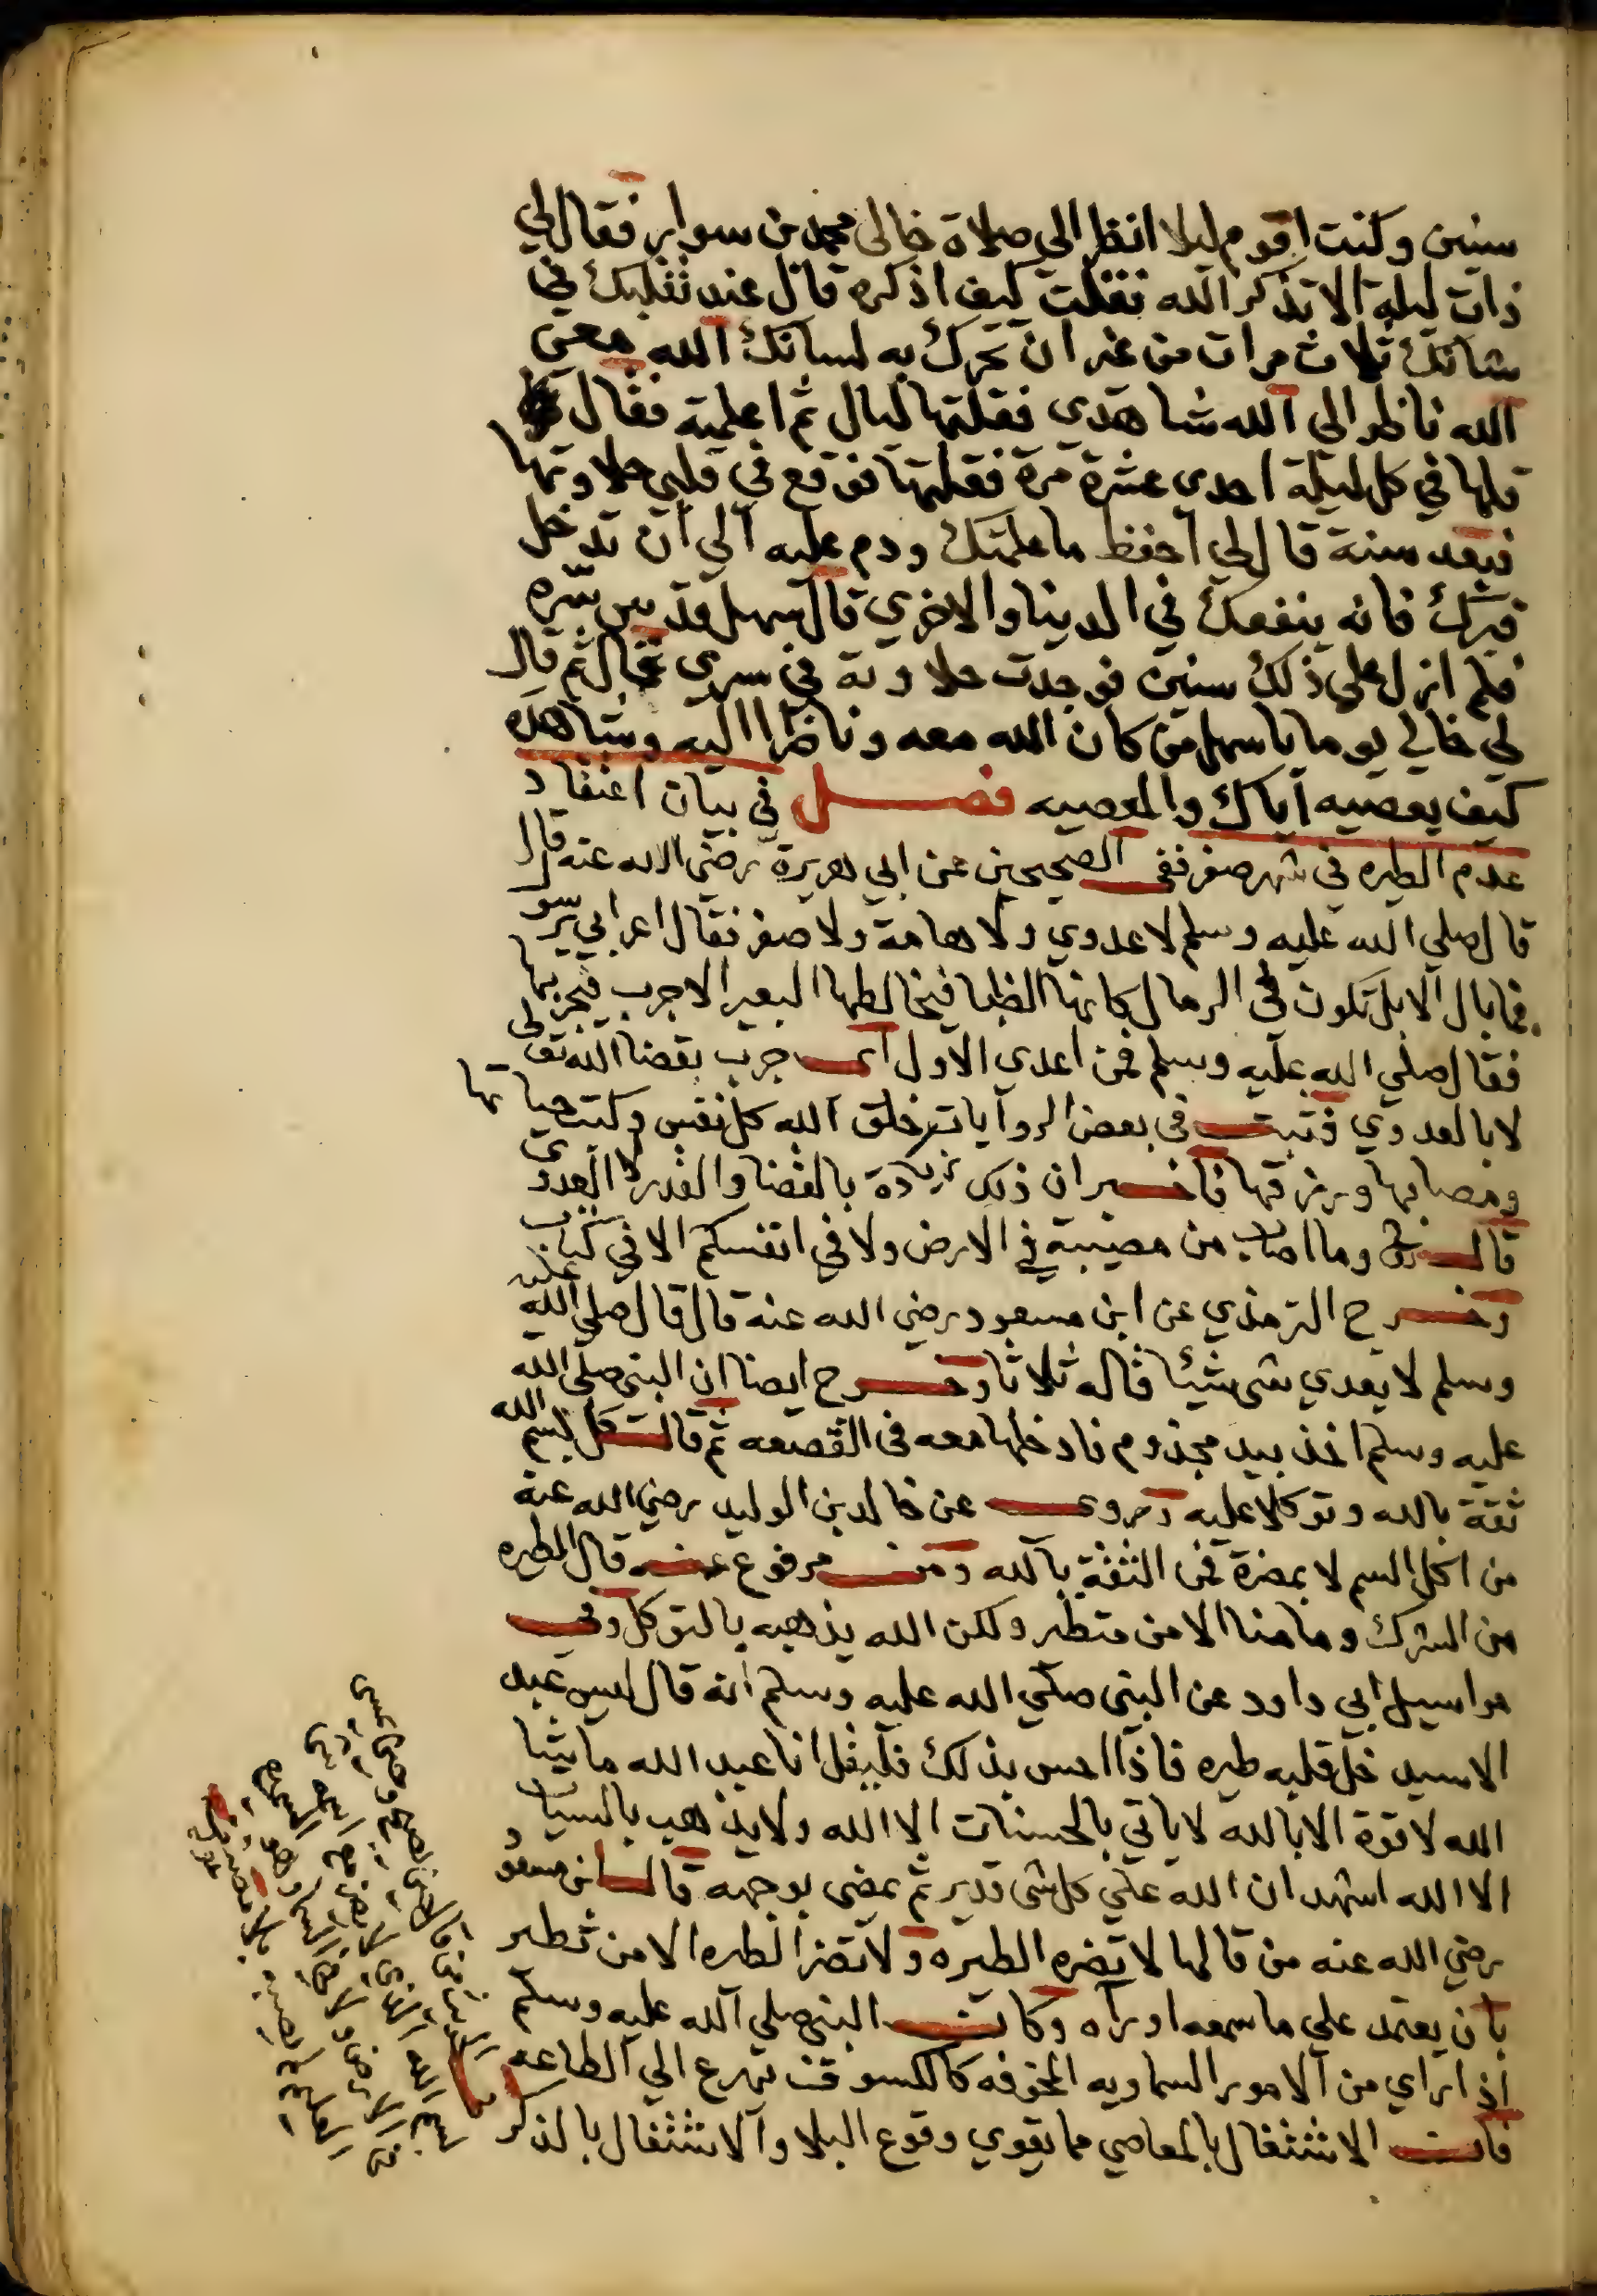 سنين وكنت اقوم ليلا انظر الى صلاة خالى محمد بن سوار فقال لي
ذات ليلة الا تذكر الله فقلت كيف اذكره قال عند تقلبك في
ثلاث مرات من غير ان تحرك به لسانك الله معي
الله ناظر الي الله شاهدي فقلتها ليال ثم اعلمته فقال
قلها في كل ليلة احدى عشرة مرة فقلتها فوقع في قلبي حلاوتها
فبعد سنة قال لي احفظ ما علمتك ودم عليه الي ان تدخل
قبرك فانه ينفعك في الدينا والاخرى قال سهل قدس سره
فلم ازل على ذلك سنين فوجدت حلاوته في سري ثم قال
لي خالي يوما يا سهل من كان الله معه وناظرا اليه وشاهده
كيف يعصيه اياك والمعصيه فصل في بيان اعتقاد
عدم الطيره في شهر صفر ففي الصحيحين عن ابي هريرة رضي الله عنه قال
قال صلي الله عليه وسلم لا عدوي ولا هامة ولا صفر فقال اعرابي يرسو
فما بال الابل تكون في الرمال كانها الظبا فيخالطها البعير الاجرب فيجربها
فقال صلي الله عليه وسلم فمن اعدي الاول اى جرب بقضا الله تعالى
لا بالعدوي فثبت فى بعض الروايات خلق الله كل نفس وكتب حياتها
ومصابها ورزقها فاخبر ان ذلك بالقضا والقدر لا العدوى
قال وما اصاب من مصيبة في الارض ولا في انفسكم الا في كتاب
وخرج الترمذي عن ابن مسعود رضي الله عنه قال قال صلى الله عليه
وسلم لا يعدي شى شيئا قاله ثلاثا وخرج ايضا ان النبى صلى الله
عليه وسلم اخذ بيد مجذوم فادخلها معه فى القصعه ثم قال كل بسم الله
ثقة بالله وتوكلا عليه وروى عن خالد بن الوليد رضي الله عنه
من اكل السم لا بمضرة فمن الثقة بالله ومن مرفوع عنه قال الطيره
من الشرك وما منا الا من متطير ولكن الله يذهبه بالتوكل وفى
مراسيل ابي داود عن النبى صلي الله عليه وسلم انه قال ليس عبد
الا سيدخل قلبه طيره فاذا احس بذلك فليقل انا عبد الله ما شا
الله لا قوة الا بالله لا ياتي بالحسنات الا الله ولا يذهب بالسيات
الا الله اشهد ان الله علي كل شى قدير ثم يمضى بوجهه قال ابن مسعود
رضي الله عنه من قالها لا تضره الطيره ولا تضر الطيره الا من تطير
بان يعتمد علي ما سمعه او رآه وكان النبى صلي الله عليه وسلم
اذا راي من الامور السماويه المخوفه كالكسوف يهرع الي الطاعه
فان الاشتغال بالمعاصي مما يقوي وقوع البلا والاشتغال بالذكر